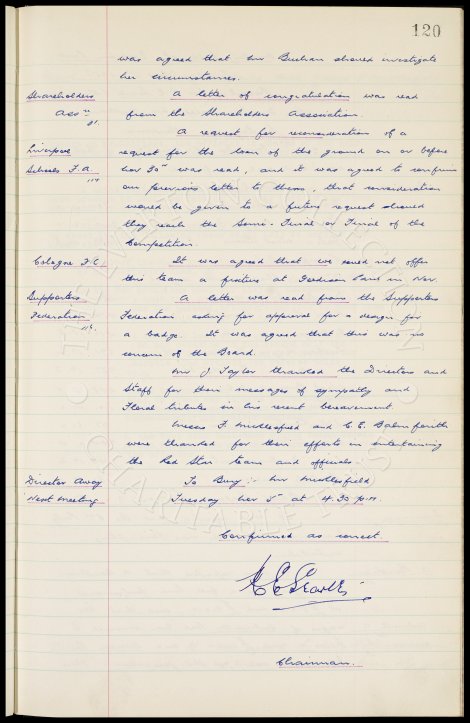 120
was agreed that Mr Buchan should investigate
her circumstances.
Shareholders A letter of congratulation was read
Assn from the Shareholders Association.
A request for reconsideration of a
Liverpool request for the loan of the ground on or before
Schools F.A. Nov 30th was read, and it was agreed to confirm
our previous letter to them, that consideration
would be given to a future request should
they reach the Semi-Final or Final of the
Competition.
Cologne F.C. It was agreed that we could not offer
this team a fixture at Goodison Park in Nov.
Supporters A letter was read from the Supporters
Federation Federation asking for approval for a design for
a badge. It was agreed that this was no
concern of the Board.
Mr J Taylor thanked the Directors and
Staff for their messages of sympathy and
Floral tributes in his recent bereavement.
Messrs F. Micklesfield and C E Balmforth
were thanked for their efforts in entertaining
the Red Star team and officials
Director Away To Bury :- Mr Micklesfield
Next Meeting Tuesday Nov 5th at 4.30 p.m.
Confirmed as correct.
Chairman.
THE EVERTON COLLECTION
CHARITABLE TRUST